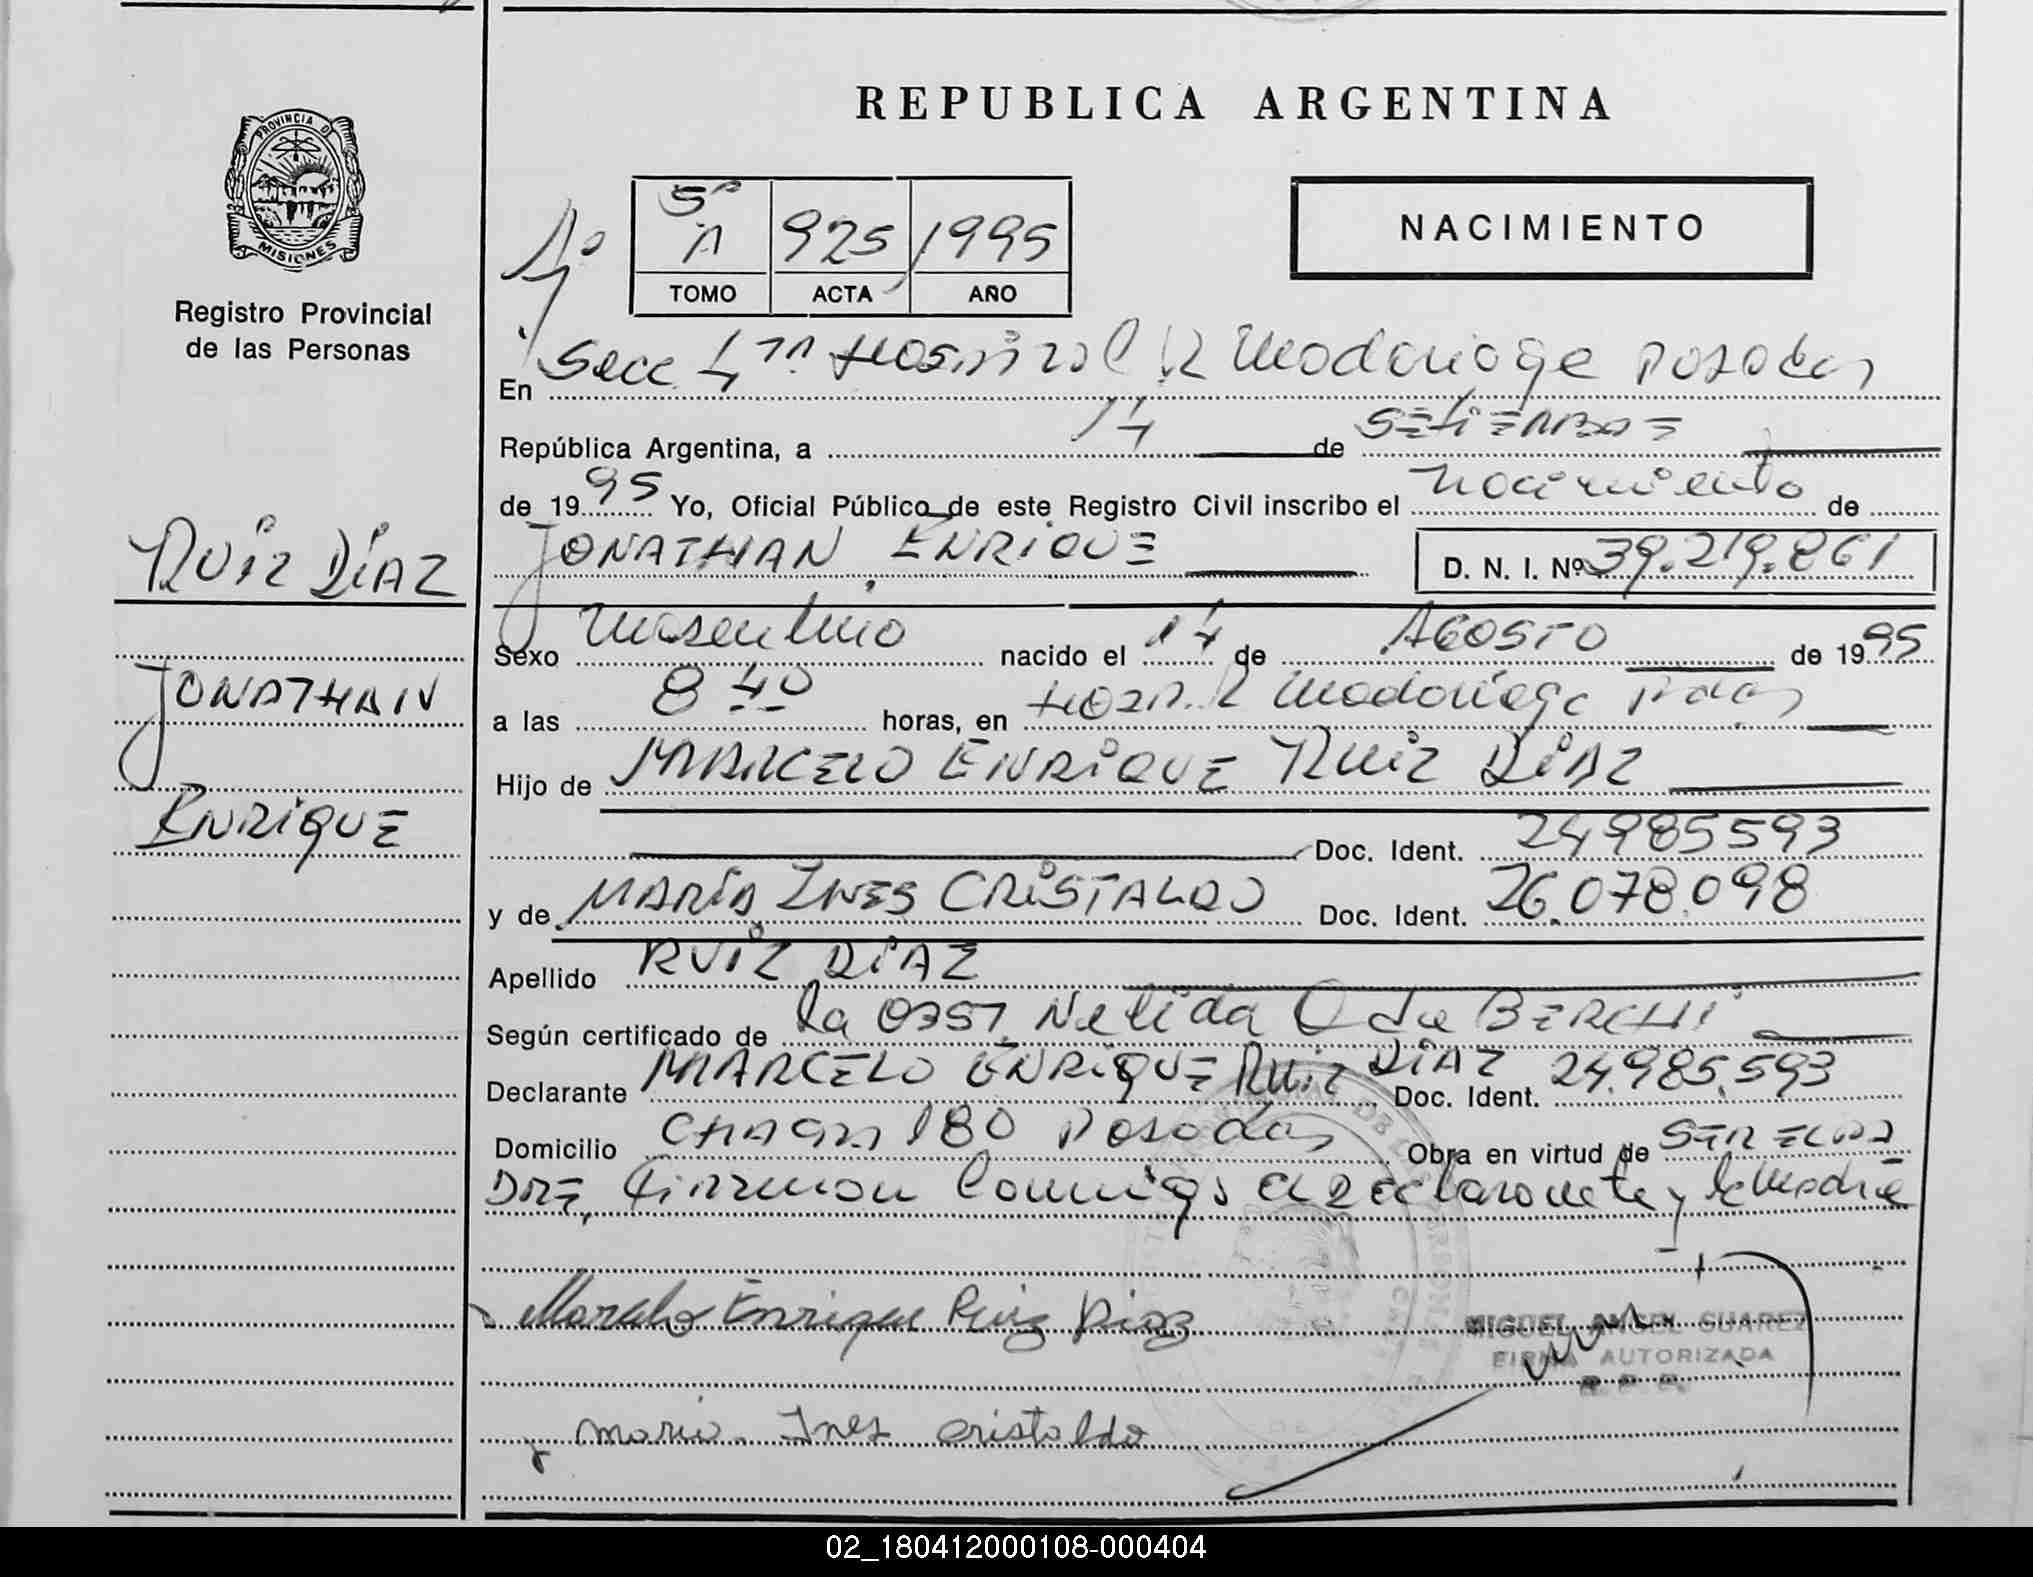 REPUBLICA ARGENTINA
PROVINCIA D
MISIONES
Registro Provincial
de las Personas
5º
A 925 1995
TOMO ACTA AÑO
NACIMIENTO
En Secc 4ta Hospital R Madariaga Posadas
República Argentina, a 14 de SETIEMBRE
de 1995 Yo, Oficial Público de este Registro Civil inscribo el nacimiento de
JONATHAN ENRIQUE D. N. I. Nº 39.219.861
Sexo masculino nacido el 14 de AGOSTO de 1995
a las 8 40 horas, en Hosp. R Madariaga Pdas
Hijo de MARCELO ENRIQUE RUIZ DIAZ
Doc. Ident. 24985593
y de MARIA INES CRISTALDO Doc. Ident. 26.078.098
Apellido RUIZ DIAZ
Según certificado de la OBST. Nelida O de BERCHI
Declarante MARCELO ENRIQUE RUIZ DIAZ Doc. Ident. 24.985.593
Domicilio 180 Posadas Obra en virtud de SER EL PA
DRE, Firman conmigo el declarante y la madre
Marcelo Enrique Ruiz Diaz
MIGUEL ANGEL SUAREZ
FIRMA AUTORIZADA
R. P. P.
Maria Ines Cristaldo
RUIZ DIAZ
JONATHAN
ENRIQUE
02_180412000108-000404